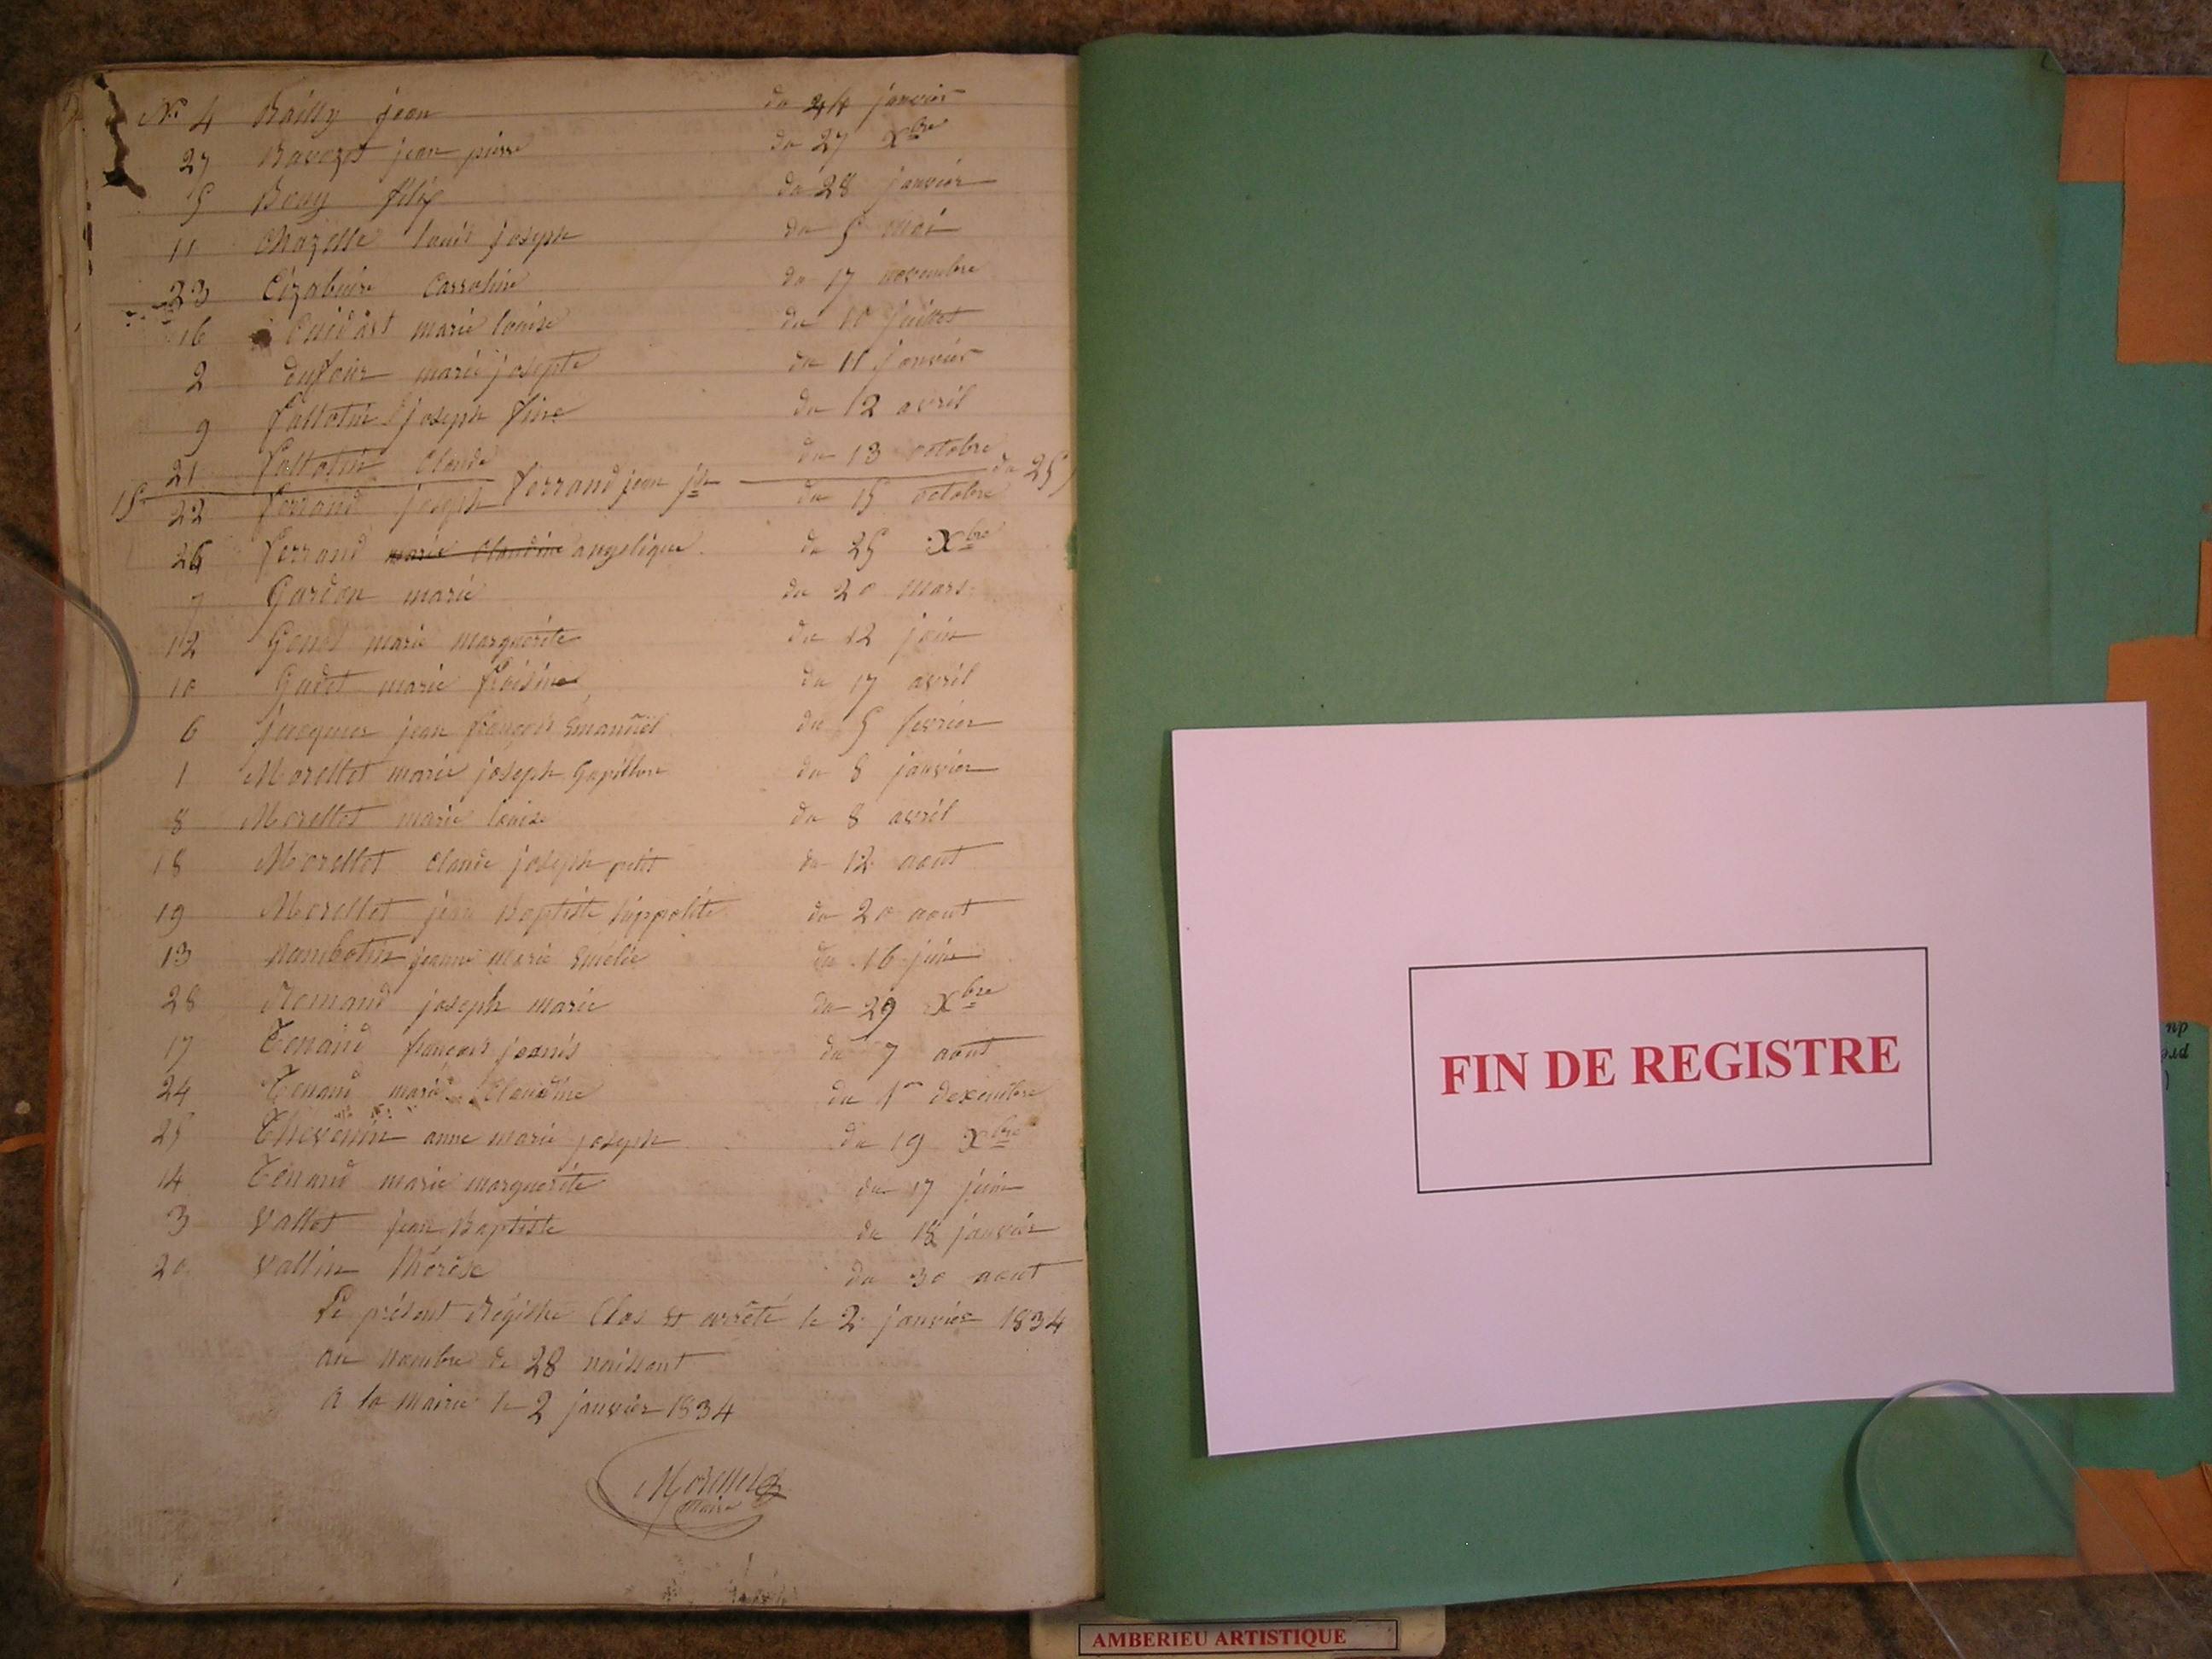 No 4 Bailly jean du 24 janvier
27 Bavozet jean pierre du 27 Xbre
5 Bouy félix du 28 janvier
11 Chazelle louis joseph du 5 mai
23 Cizabuire Carroline du 17 novembre
16 marie louise du 10 juillet
2 dufour marie josepte du 11 janvier
9 fallatin joseph fine du 12 avril
21 fallatin Claude du 13 octobre
15 ferrand jean jh du 25
22 ferrand joseph du 15 octobre
26 ferrand marie Claudine angelique du 25 Xbre
7 Gardon marie du 20 mars
12 Genot marie marguerite du 12 juin
10 Gudet marie du 17 avril
6 jacquier jean françois Émanuël du 5 fevrier
1 Morellet marie joseph du 8 janvier
8 Morellet marie louise du 8 avril
18 Morellet Claude joseph petit du 12 aout
19 Morellet jean Baptiste hippolite du 20 aout
13 nambotin jeanne marie Emélie du 16 juin
28 Romand joseph marie du 29 Xbre
17 Tenand françois du 7 aout
24 Tenand marie Claudine du 1r dexembre
25 Thevenin anne marie joseph du 19 Xbre
14 Tenand marie marguerite du 17 juin
3 Vallet jean Baptiste du 18 janvier
20 Vallin thérèse du 30 aout
Le présent Régistre Clos et arrêté le 2 janvier 1834
au nombre de 28 naissant
a la mairie le 2 janvier 1834
Morellet
Maire
FIN DE REGISTRE
AMBERIEU ARTISTIQUE